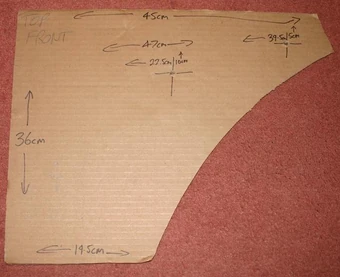 TOP
FRONT
45cm
47cm
39.5cm|5cm
22.5cm|10cm
36cm
19.5cm